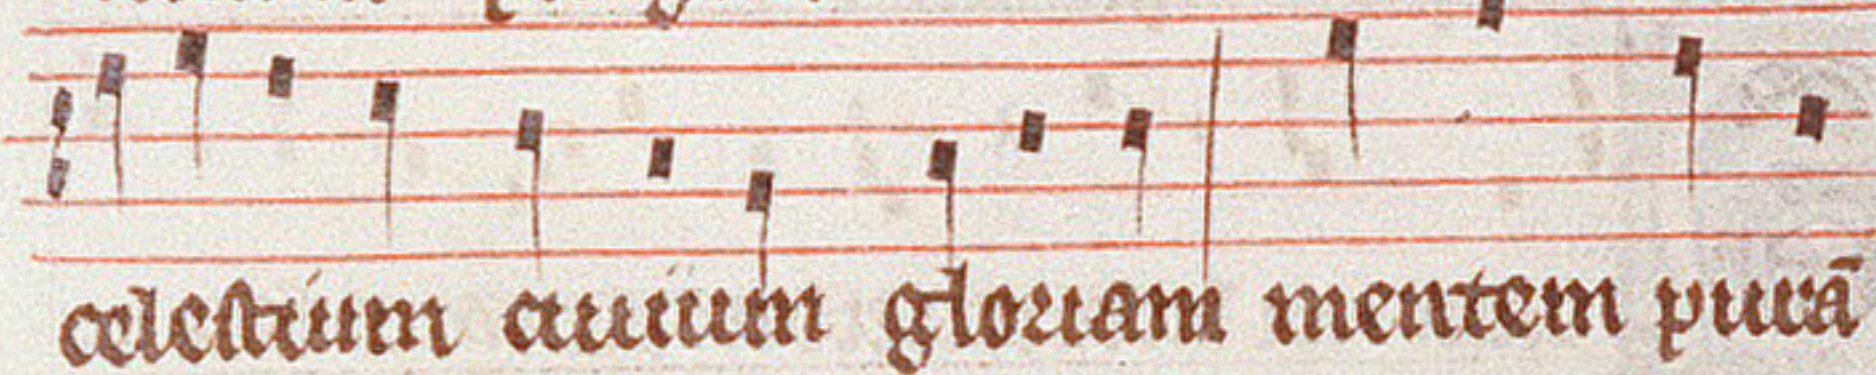 celestium ciuium gloriam mentem purā